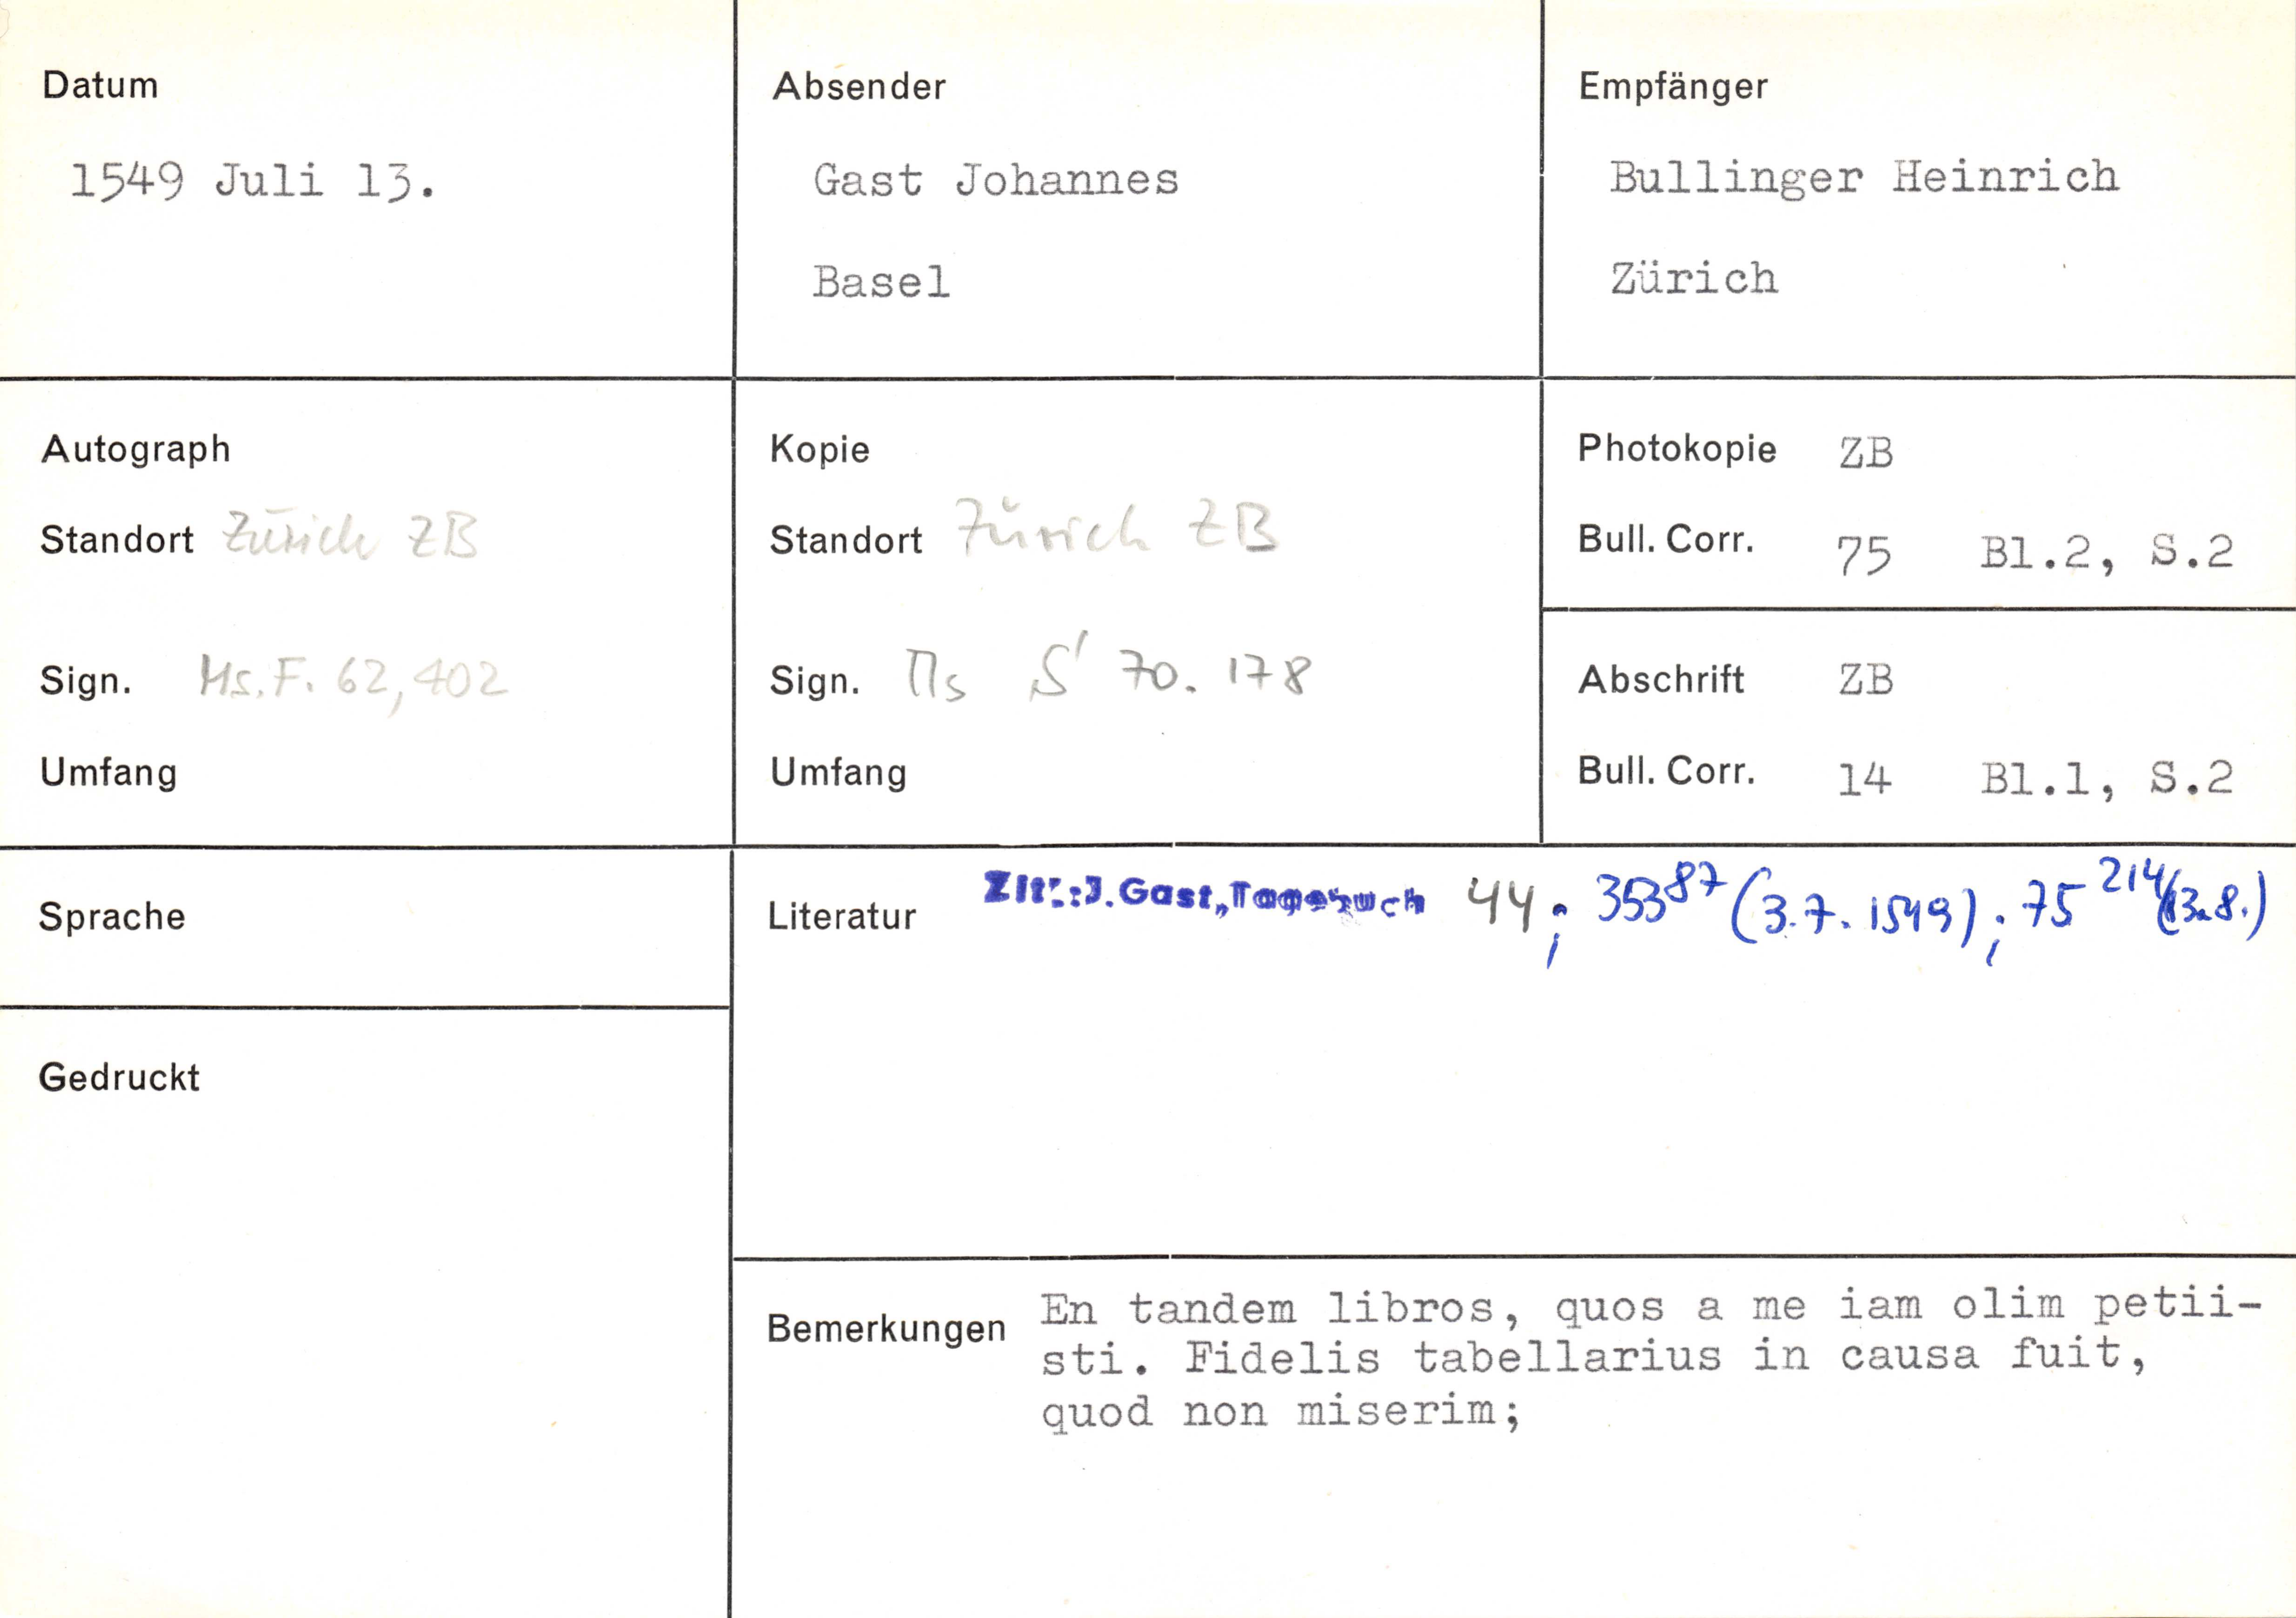 Datum
1549 Juli 13.
Absender
Gast Johannes
Basel
Empfänger
Bullinger Heinrich
Zürich
Autograph
Standort Zürich ZB
Sign. Ms. F. 62, 402
Umfang
Kopie
Standort Zürich ZB
Sign. Ms S 70. 178
Umfang
Photokopie ZB
Bull. Corr. 75 Bl.2, S.2
Abschrift ZB
Bull. Corr. 14 Bl.1, S.2
Sprache
Gedruckt
Literatur Zit.: J. Gast, Tagebuch 44; 353⁸⁷ (3.7.1549); 75²¹⁴ (13.8.)
Bemerkungen En tandem libros, quos a me iam olim petii-
sti. Fidelis tabellarius in causa fuit,
quod non miserim;